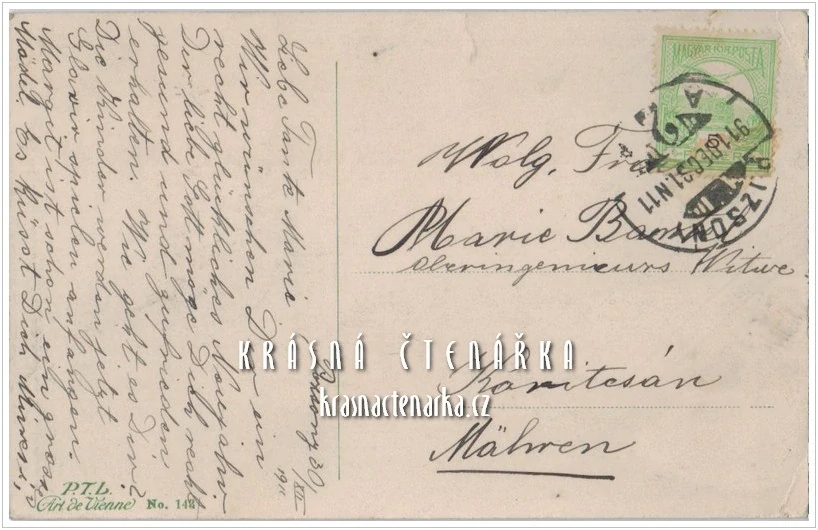 Pozsony 30/XII
1911
Liebe Tante Marie
Wir wünschen Dir ein
recht glückliches Neujahr.
Der liebe Gott möge Dich recht
gesund und zufrieden
erhalten. Wie geht es Dir?
Die Kinder werden jetzt
Clavir spielen anfangen.
Margit ist schon ein großes
Mädel. Es küsst Dich
P.T.L.
Art de Vienne No. 142
MAGYAR KIR. POSTA
POZSONY
911 DEC 31. N 11
Wolg. Frau
Marie
Oberingenieurs Witwe
Koritcsán
Mähren
KRÁSNÁ ČTENÁŘKA
krasnactenarka.cz